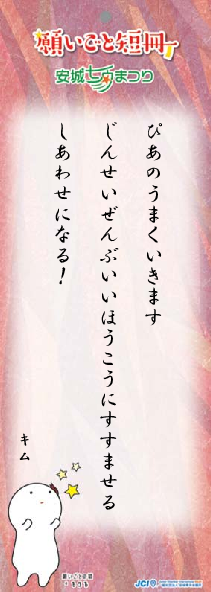 願いごと短冊
安城七夕まつり
ぴあのうまくいきます
じんせいぜんぶいいほうこうにすすませる
しあわせになる!
キム
願いごとの泉
きーぼー
JCI